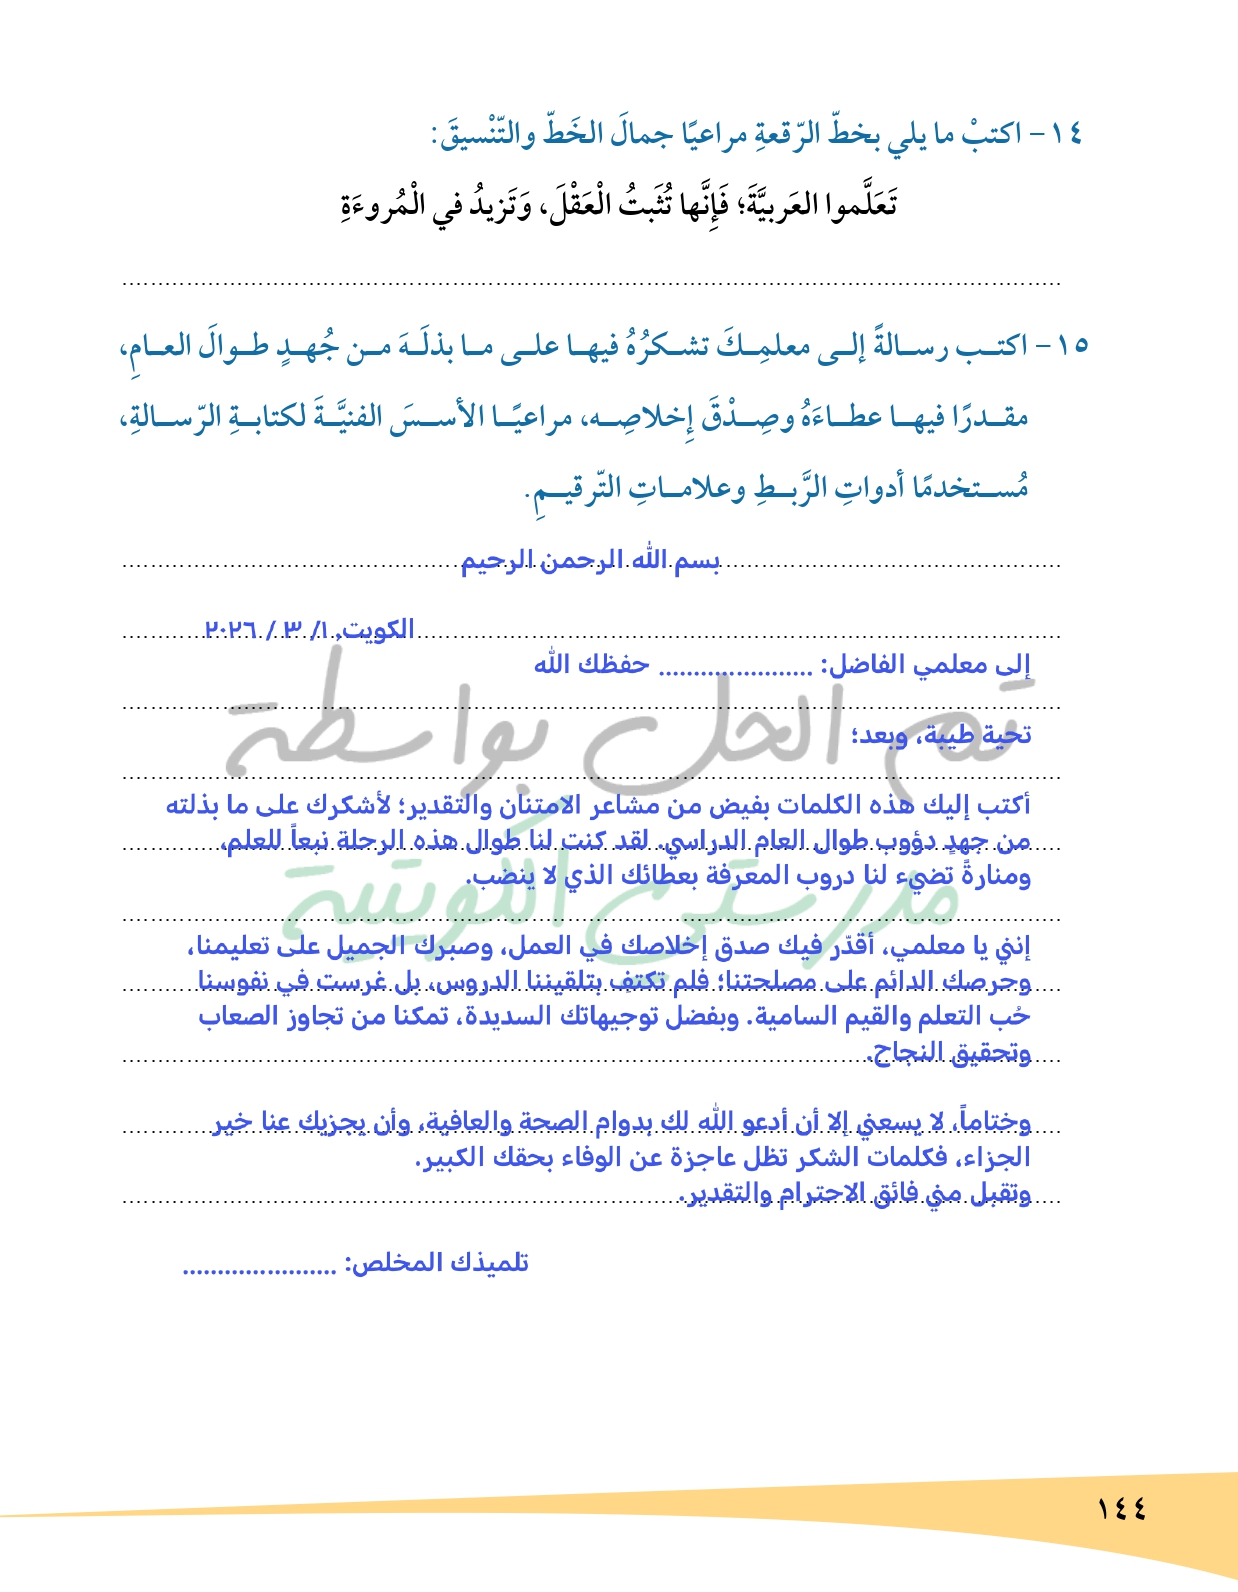 ١٤ - اكتبْ ما يلي بخطّ الرّقعةِ مراعيًا جمالَ الخَطّ والتّنْسيقَ:
تَعَلَّموا العَربيَّةَ؛ فَإِنَّها تُثَبتُ الْعَقْلَ، وَتَزيدُ في الْمُروءَةِ
١٥ - اكتب رسالةً إلى معلمِكَ تشكرُهُ فيها على ما بذلَهَ من جُهدٍ طوالَ العامِ،
مقدرًا فيها عطاءَهُ وصِدْقَ إِخلاصِه، مراعيًا الأسسَ الفنيَّةَ لكتابةِ الرّسالةِ،
مُستخدمًا أدواتِ الرَّبطِ وعلاماتِ التّرقيمِ.
بسم الله الرحمن الرحيم
الكويت, ١/ ٣ / ٢٠٢٦
إلى معلمي الفاضل: ...................... حفظك الله
تم الحل بواسطة
تحية طيبة، وبعد؛
أكتب إليك هذه الكلمات بفيض من مشاعر الامتنان والتقدير؛ لأشكرك على ما بذلته
من جهدٍ دؤوب طوال العام الدراسي. لقد كنت لنا طوال هذه الرحلة نبعاً للعلم،
ومنارةً تضيء لنا دروب المعرفة بعطائك الذي لا ينضب.
مدرستي الكويتية
إنني يا معلمي، أقدّر فيك صدق إخلاصك في العمل، وصبرك الجميل على تعليمنا،
وحرصك الدائم على مصلحتنا؛ فلم تكتفِ بتلقيننا الدروس، بل غرست في نفوسنا
حُب التعلم والقيم السامية. وبفضل توجيهاتك السديدة، تمكنا من تجاوز الصعاب
وتحقيق النجاح.
وختاماً، لا يسعني إلا أن أدعو الله لك بدوام الصحة والعافية، وأن يجزيك عنا خير
الجزاء، فكلمات الشكر تظل عاجزة عن الوفاء بحقك الكبير.
وتقبل مني فائق الاحترام والتقدير.
تلميذك المخلص: ......................
١٤٤